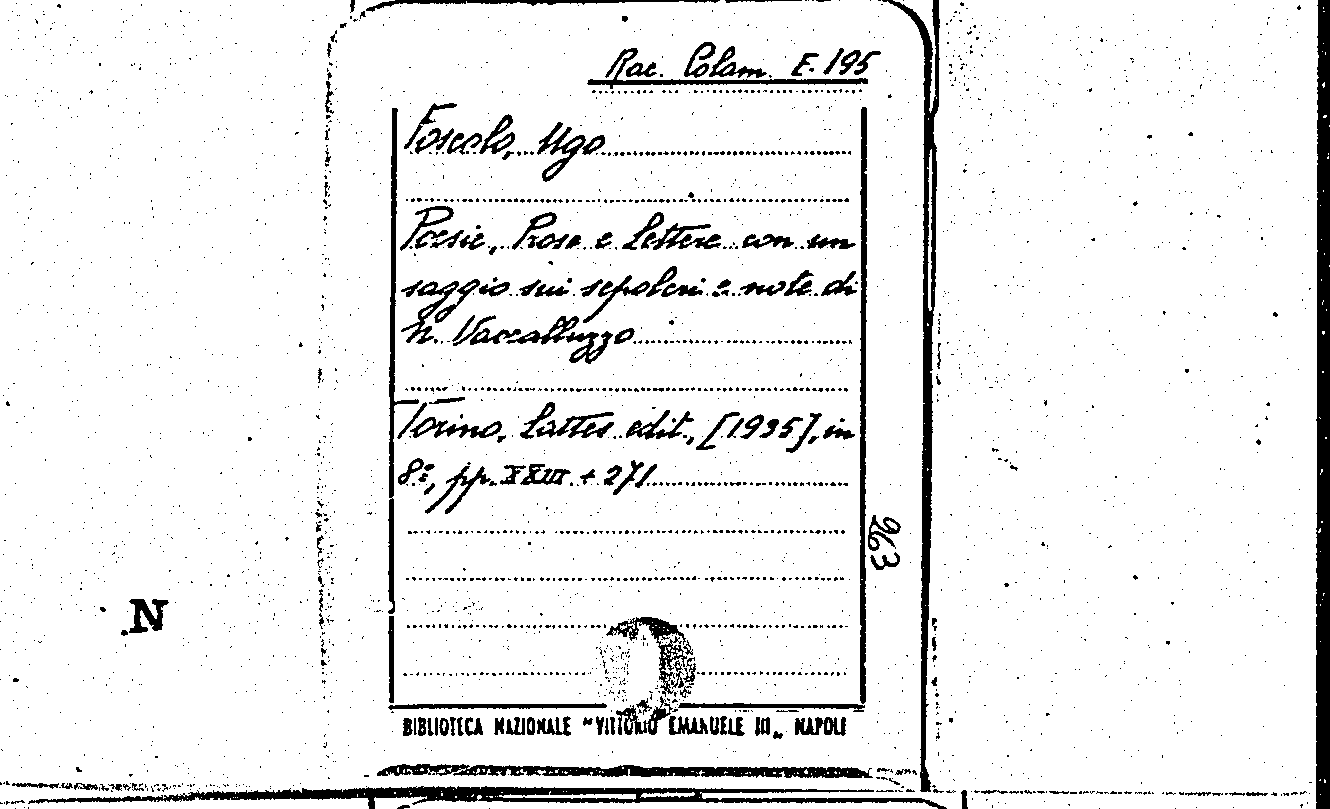 Rac. Colam. E. 195
Foscolo, Ugo
Poesie, Prose e Lettere con un
saggio sui sepolcri e note di
N. Vaccalluzzo
Torino, Lattes edit., [1935], in
8º, pp. XXIII + 271
263
N
BIBLIOTECA NAZIONALE "VITTORIO EMANUELE III„ NAPOLI